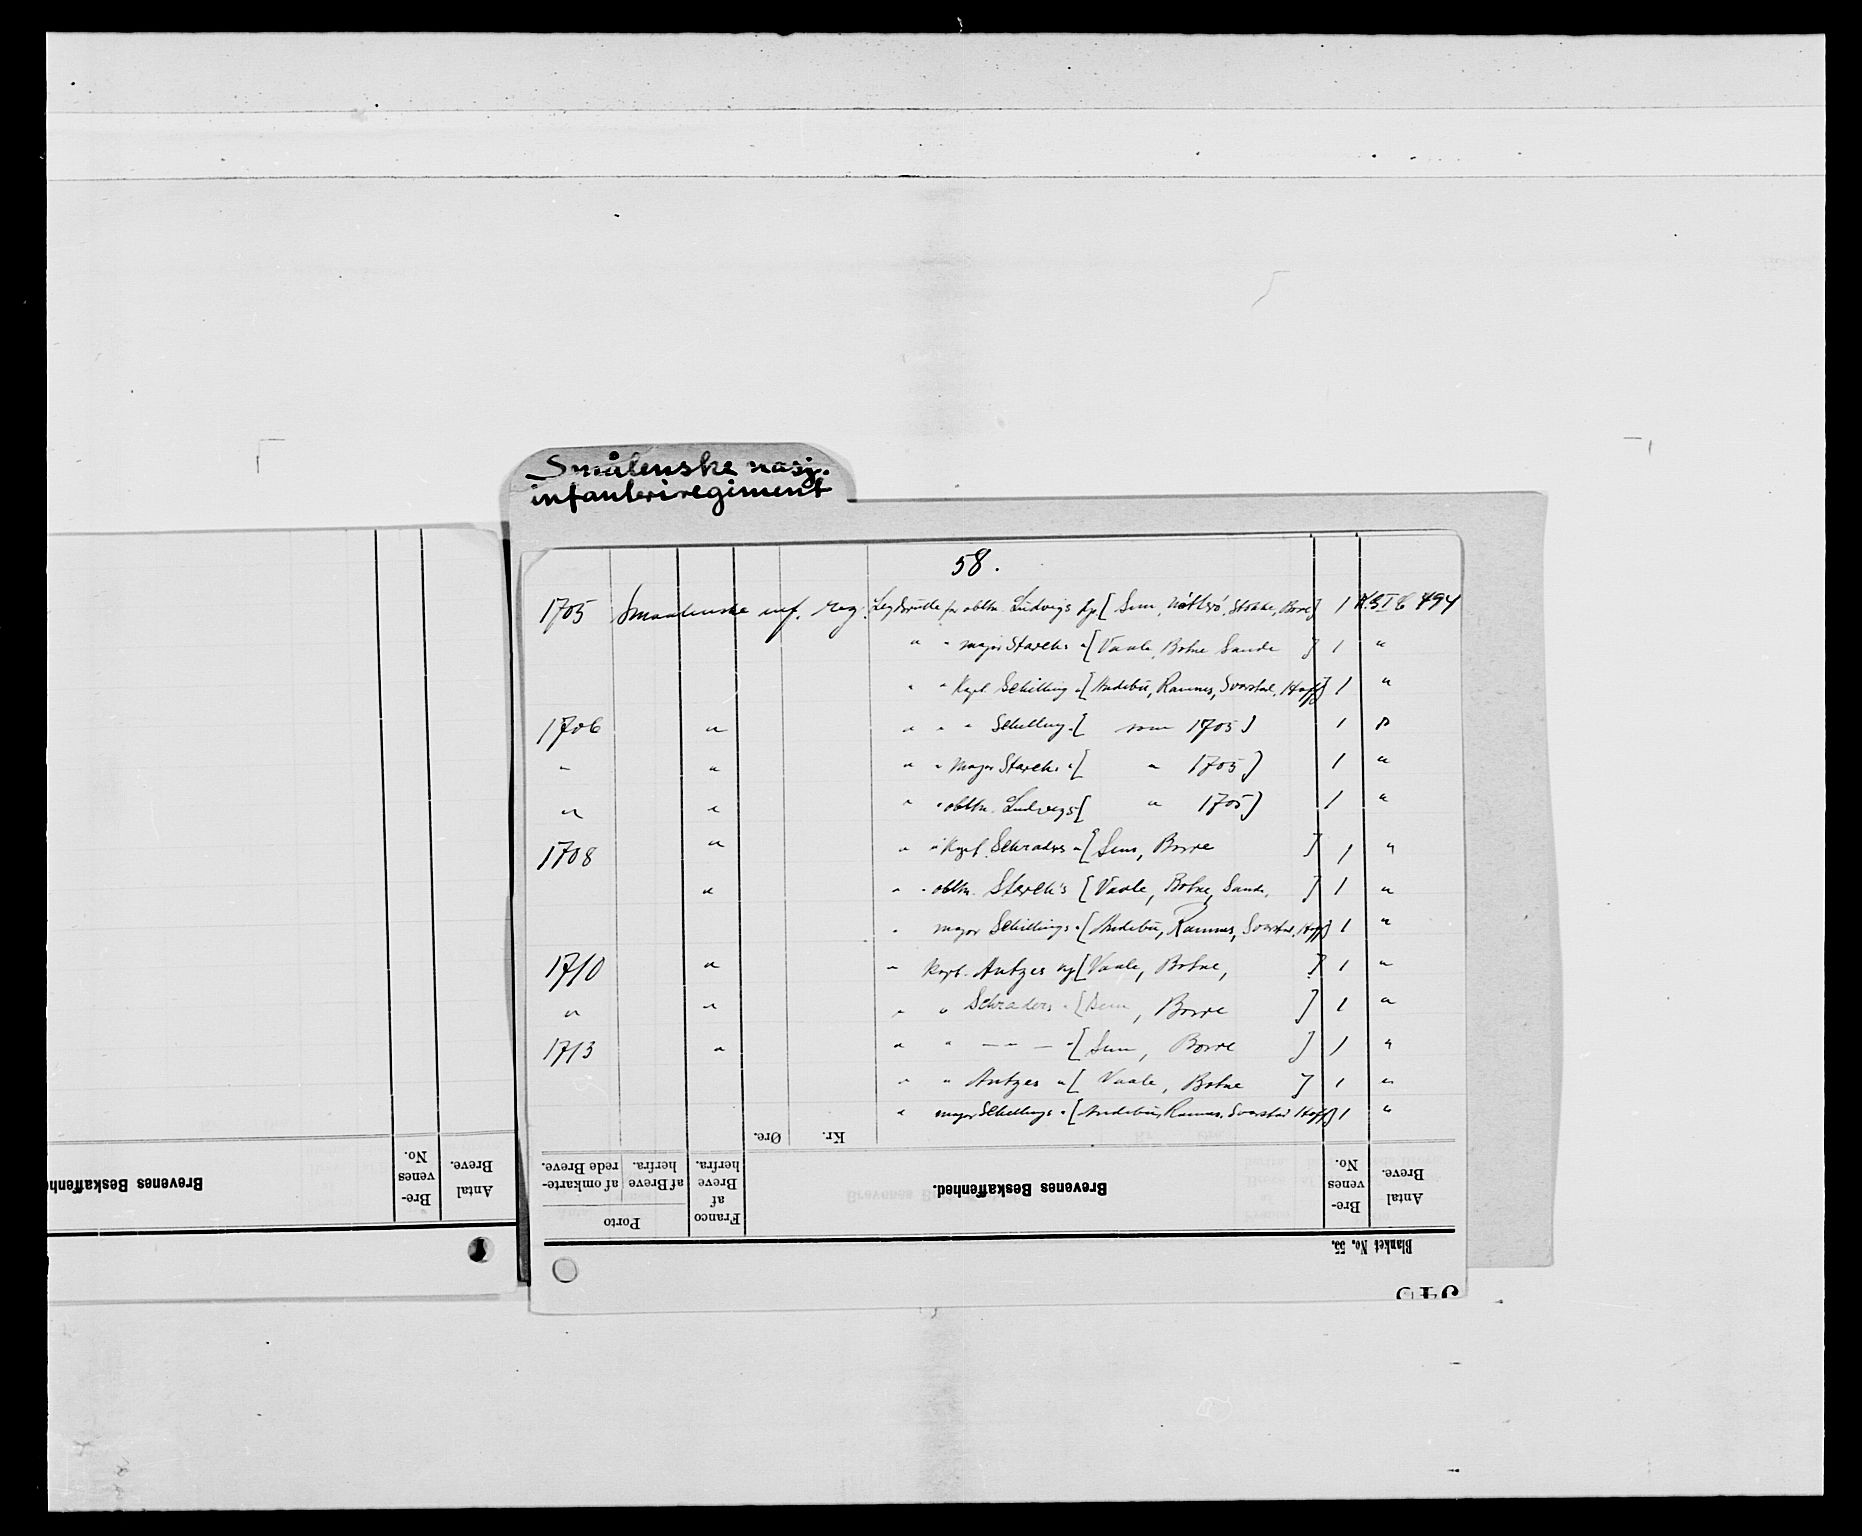 Smålenske nasj.
infanteriregiment
58.
1705 Smaalenske inf. reg. Lægdsrulle for obltn. Ludvigs kp [Sem, Nøtterø, Stokke, Borre] 1
" " major Starchs " [Vaale, Botne Sande ] 1 "
" " Kapt. Schilling " [Andebu, Ramnes, Svarstad, Hoff] 1 "
1706 " " " " Schilling " [ som 1705 ] 1 "
" " " " Major Starchs " [ " 1705 ] 1 "
" " " " obltn. Ludvigs [ " 1705 ] 1 "
1708 " " " Kapt. Schraders " [Sem, Borre ] 1 "
" " " obltn. Sterch's [Vaale, Botne, Sande, ] 1 "
" major Schillings " [Andebu, Ramnes, Svarstad, Hoff] 1 "
1710 " " Kapt. Antzes kp [Vaale, Botne, ] 1 "
" " " " Schraders " [Sem, Borre ] 1 "
1713 " " " — " — " [Sem, Borre ] 1 "
" " Antzes " [Vaale, Botne ] 1 "
" major Schillings " [Andebu, Ramnes, Svarstad Hoff] 1 "
Øre. Kr.
Porto
af omkarte-
rede Breve.
af Breve
herfra.
Franco
af
Breve
herfra.
Brevenes Beskaffenhed.
Bre-
venes
No.
Antal
Breve.
Blanket No. 55.
Brevenes Beskaffenhed
Bre-
venes
No.
Antal
Breve.